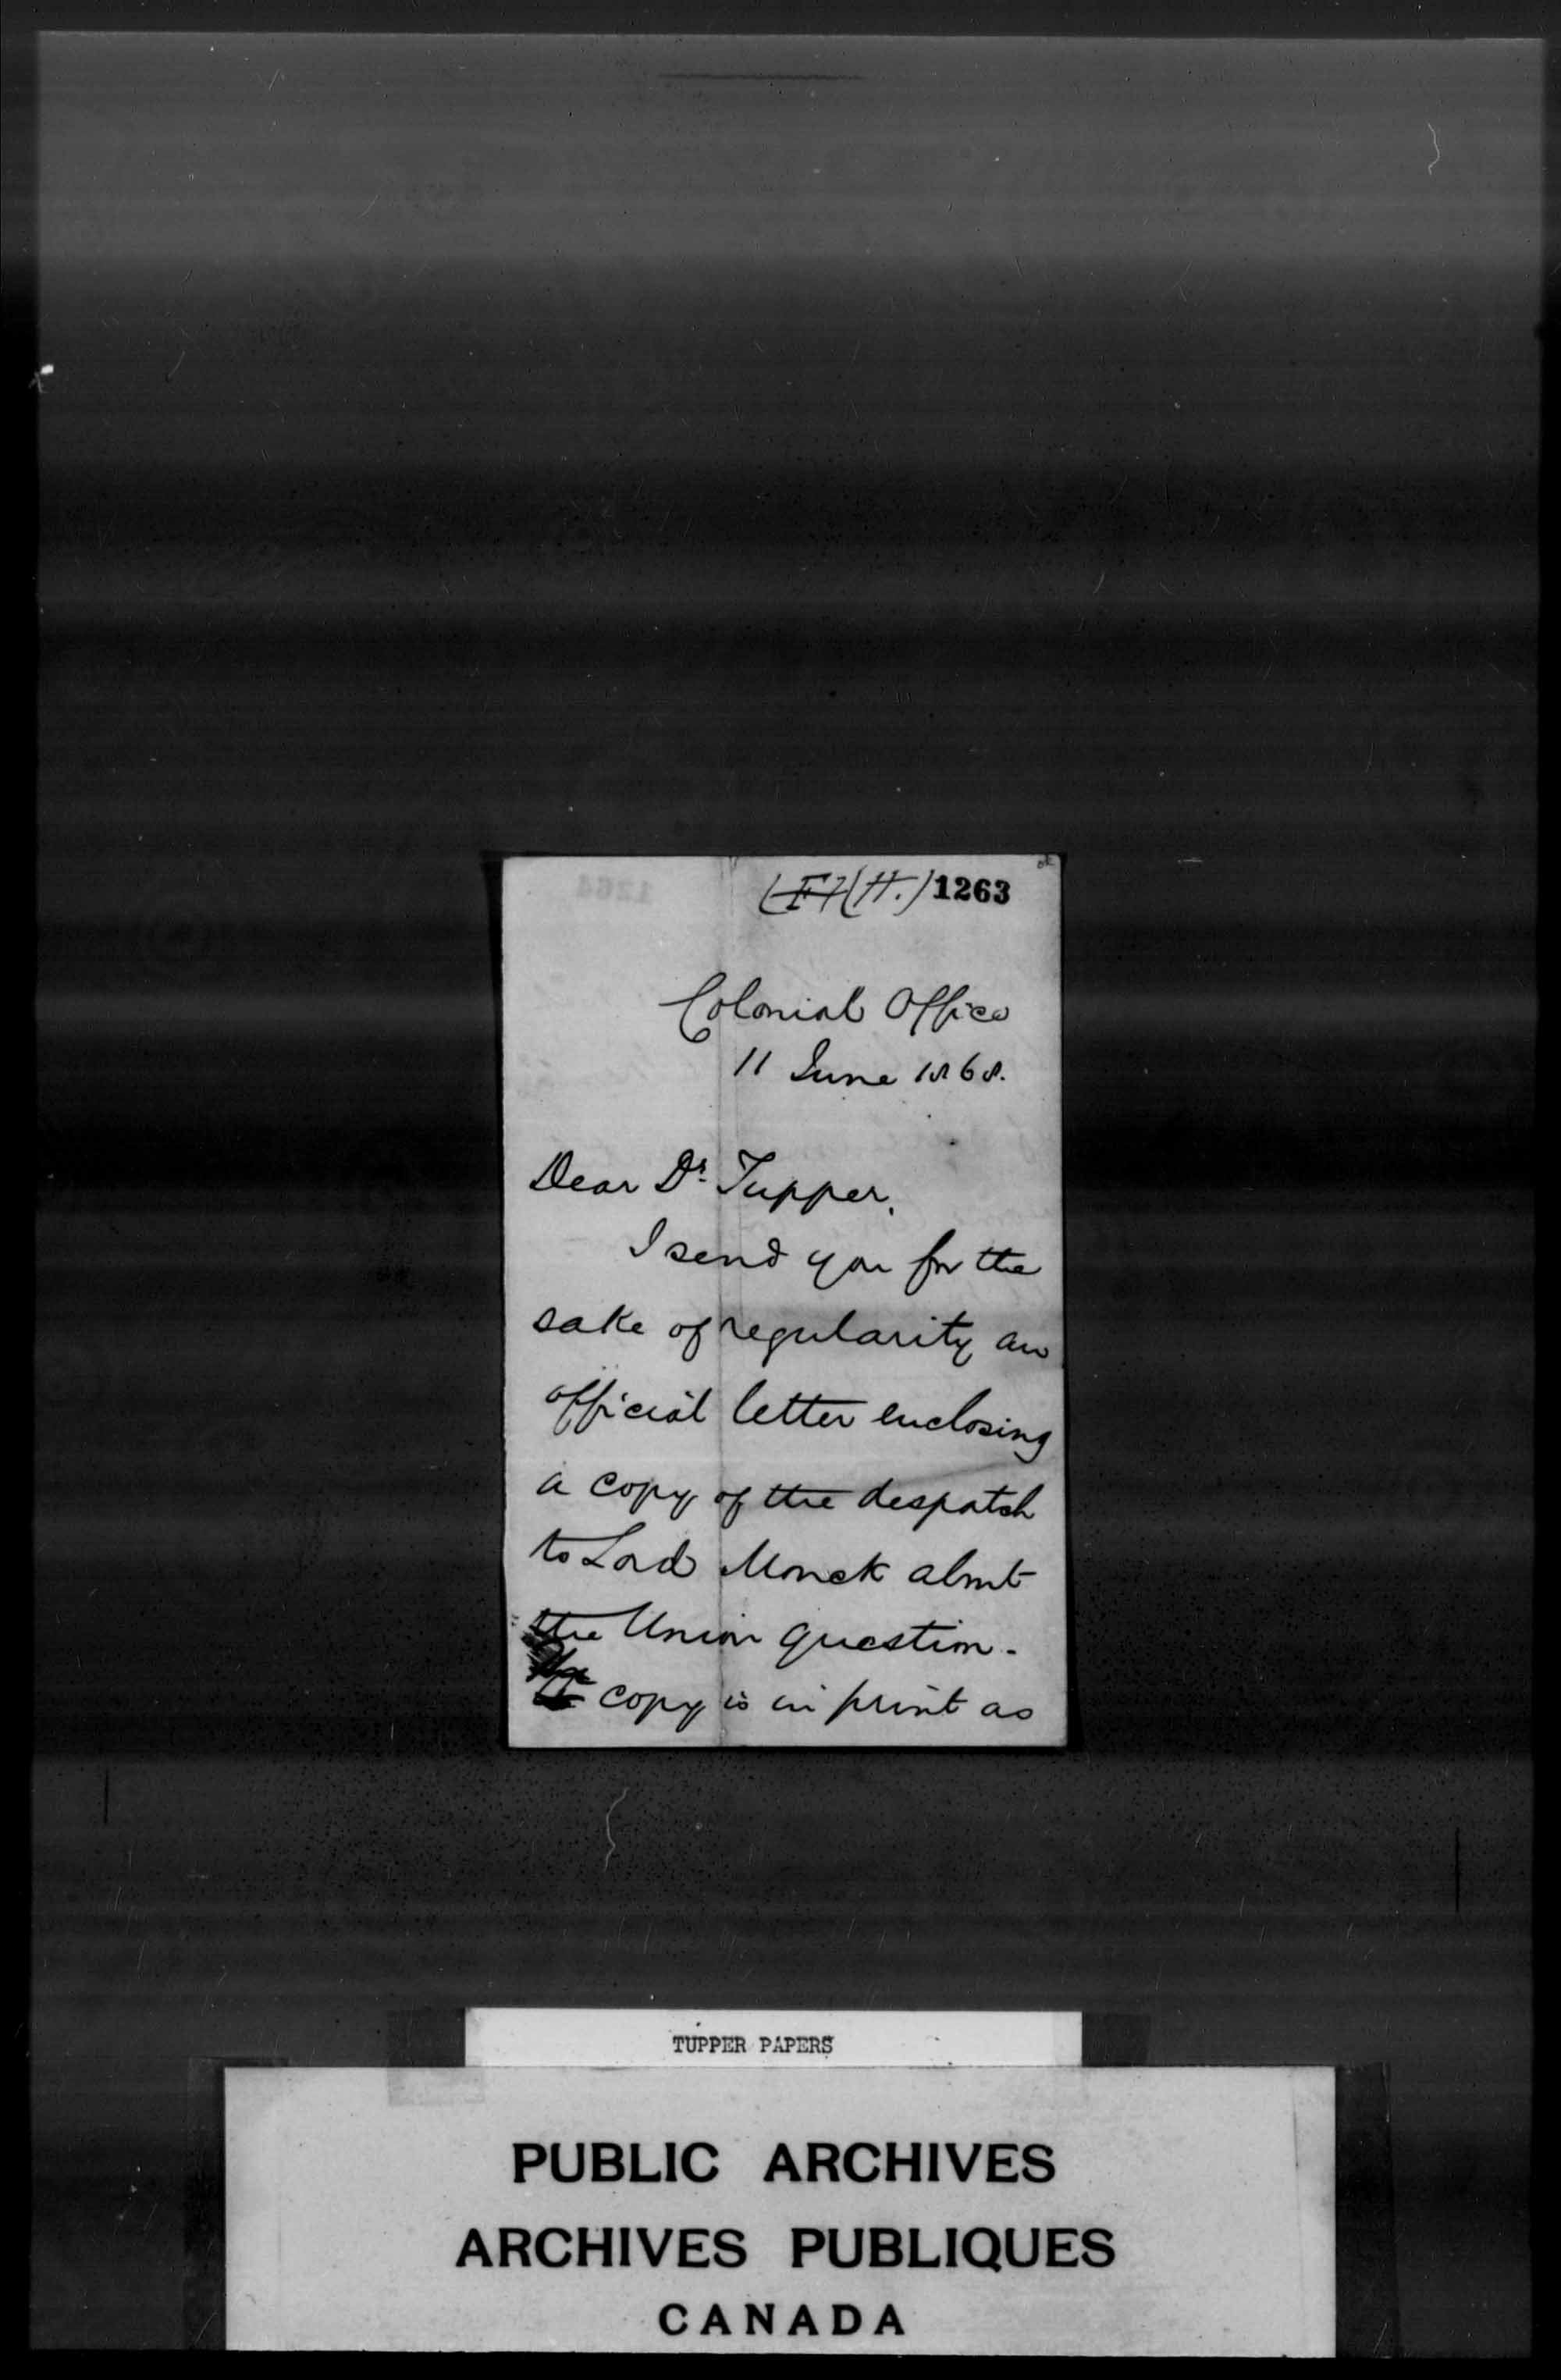 (F)(H.) 1263
Colonial Office
11 June 1868.
Dear Dr. Tupper,
I send you for the
sake of regularity an
official letter enclosing
a copy of the despatch
to Lord Monck about
the Union question.
copy is in print as
TUPPER PAPERS
PUBLIC ARCHIVES
ARCHIVES PUBLIQUES
CANADA